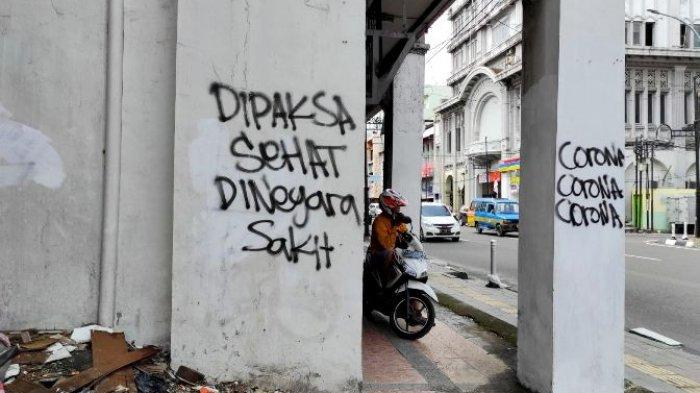 DIPAKSA
SEHAT
DINegara
SAKIT
CORONA
CORONA
CORONA